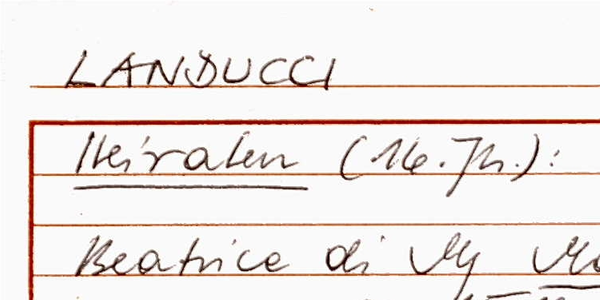 LANDUCCI
Heiraten (16. Jh.):
Beatrice di